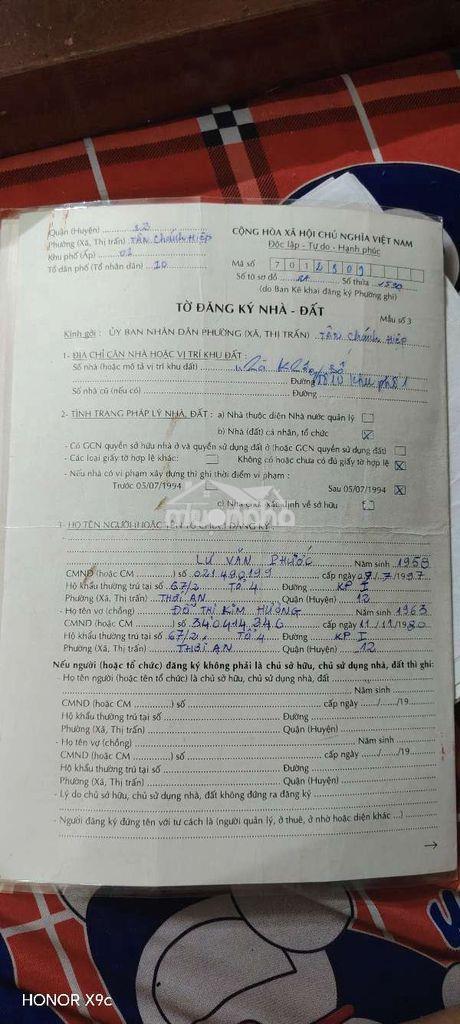 Quận (Huyện) 12
Phường (Xã, Thị trấn) TÂN CHÁNH HIỆP
Khu phố (Ấp) 01
Tổ dân phố (Tổ nhân dân) 10
CỘNG HÒA XÃ HỘI CHỦ NGHĨA VIỆT NAM
Độc lập - Tự do - Hạnh phúc
Mã số 7012
Số tờ sơ đồ Số thửa
(do Ban Kê khai đăng ký Phường ghi)
TỜ ĐĂNG KÝ NHÀ - ĐẤT
Mẫu số 3
Kính gởi : ỦY BAN NHÂN DÂN PHƯỜNG (XÃ, THỊ TRẤN) TÂN CHÁNH HIỆP
1- ĐỊA CHỈ CĂN NHÀ HOẶC VỊ TRÍ KHU ĐẤT :
Số nhà (hoặc mô tả vị trí khu đất)
Đường Khu phố 1
Số nhà cũ (nếu có) Đường
2- TÌNH TRẠNG PHÁP LÝ NHÀ, ĐẤT : a) Nhà thuộc diện Nhà nước quản lý
b) Nhà (đất) cá nhân, tổ chức X
- Có GCN quyền sở hữu nhà ở và quyền sử dụng đất ở (hoặc GCN quyền sử dụng đất)
- Các loại giấy tờ hợp lệ khác: Không có hoặc chưa có đủ giấy tờ hợp lệ X
- Nếu nhà có vi phạm xây dựng thì ghi thời điểm vi phạm :
Trước 05/07/1994 Sau 05/07/1994 X
c) Nhà chưa xác định về sở hữu
muonnha
3- HỌ TÊN NGƯỜI (HOẶC TÊN TỔ CHỨC) ĐĂNG KÝ
LƯ VĂN PHƯỚC Năm sinh 1958
CMND (hoặc CM) số 021490199 cấp ngày 07/7/1997
Hộ khẩu thường trú tại số 67/2 TỔ 4 Đường KP I
Phường (Xã, Thị trấn) THỚI AN Quận (Huyện) 12
- Họ tên vợ (chồng) ĐỖ THỊ KIM HƯỜNG Năm sinh 1963
CMND (hoặc CM) số 340414346 cấp ngày 11/11/1980
Hộ khẩu thường trú tại số 67/2 TỔ 4 Đường KP I
Phường (Xã, Thị trấn) THỚI AN Quận (Huyện) 12
Nếu người (hoặc tổ chức) đăng ký không phải là chủ sở hữu, chủ sử dụng nhà, đất thì ghi:
- Họ tên (hoặc tên tổ chức) là chủ sở hữu, chủ sử dụng nhà, đất
Năm sinh
CMND (hoặc CM) số cấp ngày / /19
Hộ khẩu thường trú tại số Đường
Phường (Xã, Thị trấn) Quận (Huyện)
- Họ tên vợ (chồng) Năm sinh
CMND (hoặc CM) số cấp ngày / /19
Hộ khẩu thường trú tại số Đường
Phường (Xã, Thị trấn) Quận (Huyện)
- Lý do chủ sở hữu, chủ sử dụng nhà, đất không đứng ra đăng ký
- Người đăng ký đứng tên với tư cách là (người quản lý, ở thuê, ở nhờ hoặc diện khác ...)
→
HONOR X9c